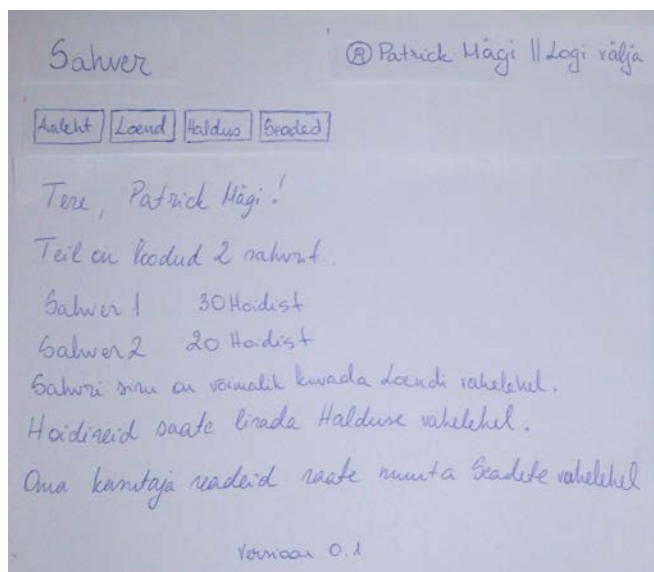 Sahver
® Patrick Mägi || Logi välja
Avaleht Loend Haldus Seaded
Tere, Patrick Mägi!
Teil on loodud 2 sahvrit.
Sahver 1 30 Hoidist
Sahver 2 20 Hoidist
Sahvri sisu on võimalik kuvada Loendi vahelehel.
Hoidiseid saate lisada Halduse vahelehel.
Oma kasutaja seadeid saate muuta Seadete vahelehel
Versioon 0.1